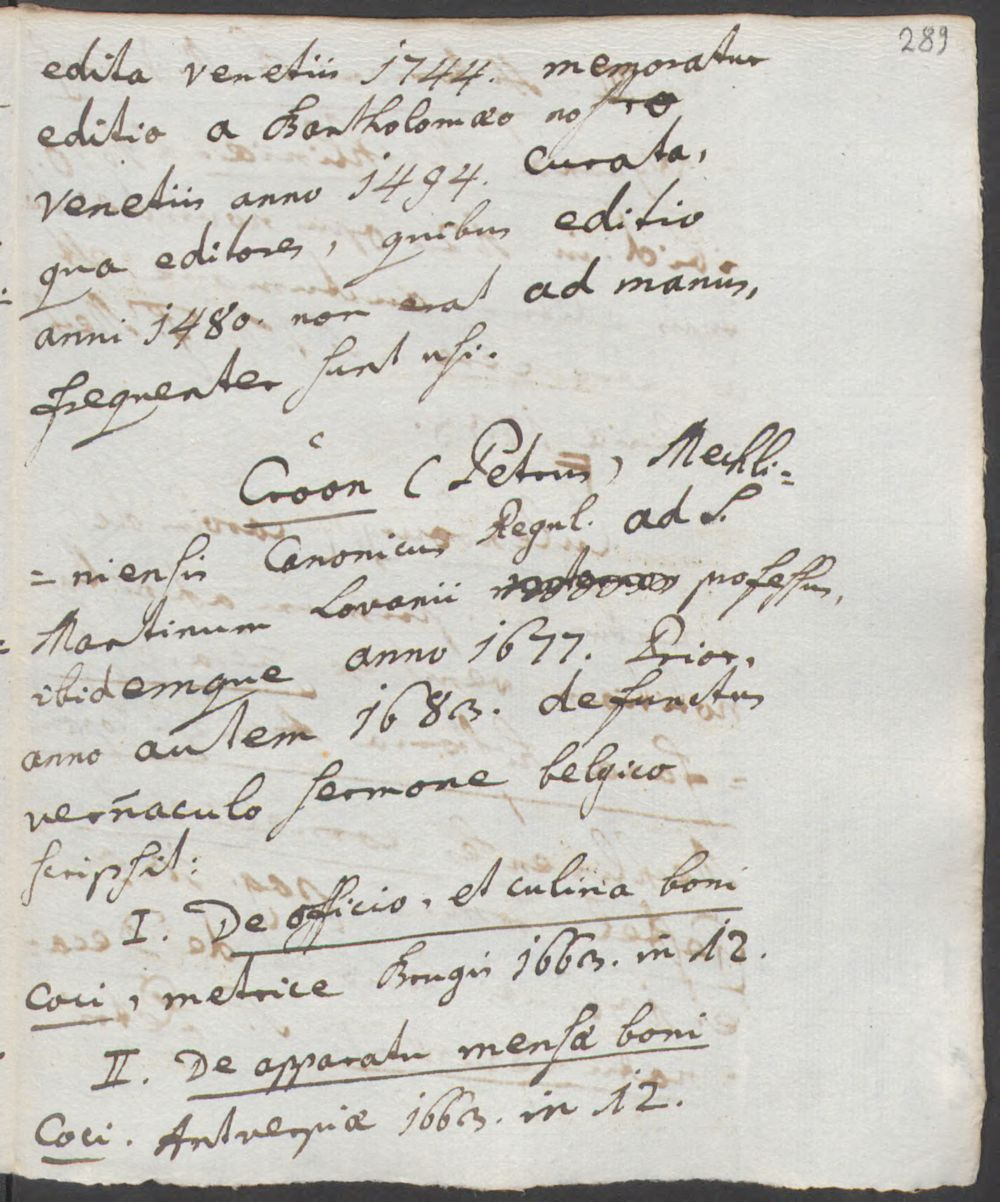 289
edita venetiis 1744. memoratur
editio a Bartholomæo nostro
Venetiis anno 1494. curata,
qua editores, quibus editio
anni 1480. non erat ad manus,
frequenter sunt usi.
Croon (Petrus) Mechli=
=niensis Canonicus Regul. ad S.
Martinum Lovanii professus,
ibidemque anno 1677. Prior,
anno autem 1683. defunctus
vernaculo sermone belgico
scripsit:
I. De officio, et culina boni
Coci, metrice Brugis 1663. in 12.
II. De apparatu mensæ boni
Coci. Antverpiæ 1663. in 12.